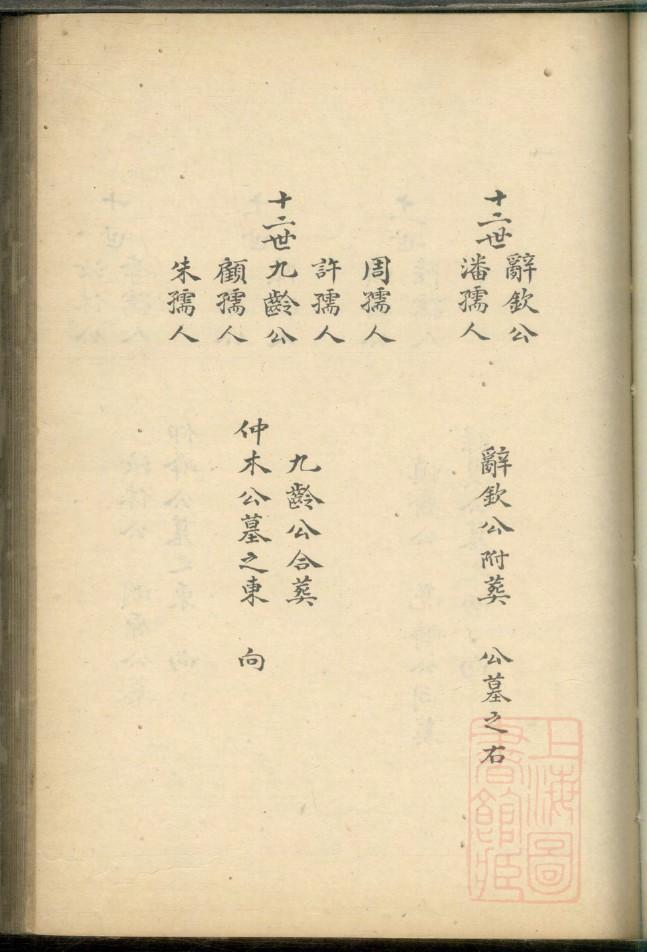 十二世
辭欽公
潘孺人
辭欽公附葬 公墓之右
周孺人
許孺人
十二世九齡公
顧孺人
朱孺人
九齡公合葬
仲木公墓之東 向
上海圖
書館藏